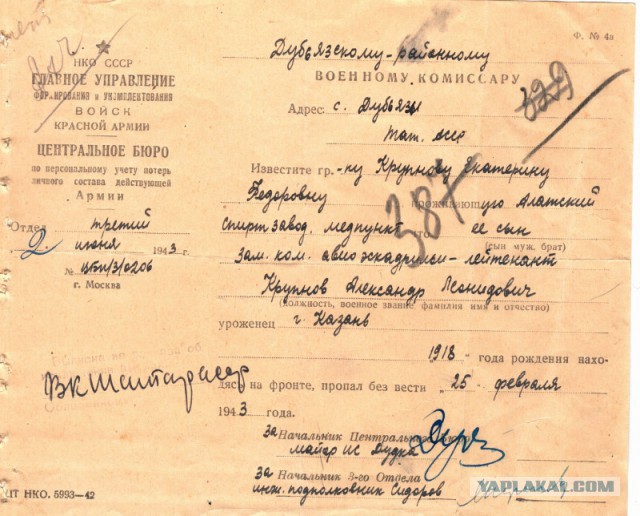 Ф. № 4а
НКО СССР
ГЛАВНОЕ УПРАВЛЕНИЕ
ФОРМИРОВАНИЯ и УКОМПЛЕКТОВАНИЯ
ВОЙСК
КРАСНОЙ АРМИИ
ЦЕНТРАЛЬНОЕ БЮРО
по персональному учету потерь
личного состава действующей
Армии
Отдел третий
2. июня 1943 г.
№ цбп/3/0206
г. Москва
Дубьязскому районному
ВОЕННОМУ КОМИССАРУ
Адрес с. Дубьязы
Тат. асср
829
387
Известите гр.-ку Крупнову Екатерину
Федоровну проживающую Алатский
спирт завод, медпункт то ее сын
(сын муж, брат)
Зам. ком. авиоэскадрильи-лейтенант
Крупнов Александр Леонидович
(должность, военное звание фамилия имя и отчество)
уроженец г. Казань
1918 года рождения нахо-
дясь на фронте, пропал без вести 25 февраля
1943 года.
За Начальник Центрального Бюро
майор ИС Дудка
За Начальник 3-го Отдела
инж. подполковник Сидоров
ЦТ НКО. 5993—42
YAPLAKAL.COM